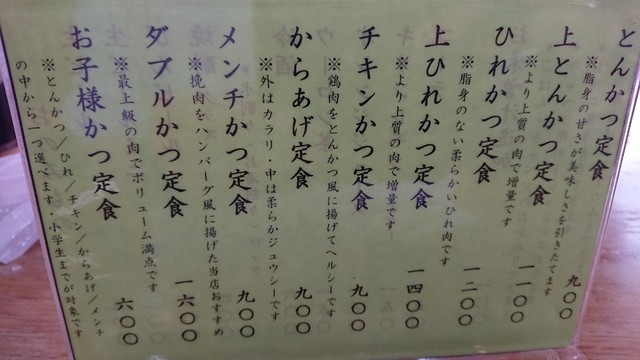 とんかつ定食
※脂身の甘さが美味しさを引きたてます
九〇〇
上とんかつ定食
※より上質の肉で増量です
一一〇〇
ひれかつ定食
※脂身のない柔らかいひれ肉です
一二〇〇
上ひれかつ定食
※より上質の肉で増量です
一四〇〇
チキンかつ定食
※鶏肉をとんかつ風に揚げてヘルシーです
九〇〇
からあげ定食
※外はカラリ・中は柔らかジュウシーです
九〇〇
メンチかつ定食
※挽肉をハンバーグ風に揚げた当店おすすめ
九〇〇
ダブルかつ定食
※最上級の肉でボリューム満点です
一六〇〇
お子様かつ定食
※とんかつ/ひれ/チキン/からあげ/メンチ
の中から一つ選べます・小学生までが対象です
六〇〇